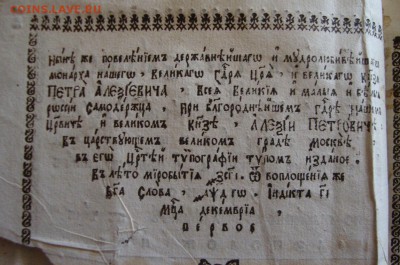 COINS.LAVE.RU
Нн҃ѣ же повелѣнїемъ держа́внѣйшагѡ и҆ мꙋдролюби́вѣйшагѡ
мона́рха на́шегѡ, вели́кагѡ гдⷭ҇рѧ цр҃ѧ, и҆ вели́кагѡ кн҃ѕѧ
ПЕТРА АЛЕѮІЕВИЧА, всеѧ̀ вели́кїѧ и҆ ма́лыѧ и҆ бѣ́лыѧ
рѡссі́и самоде́ржца, при бл҃горо́днѣйшемъ гдⷭ҇рѣ на́шемъ
цр҃вичѣ и҆ вели́комъ кн҃ѕѣ, АЛЕѮІИ ПЕТРОВИЧѢ
въ ца́рствꙋющемъ вели́комъ гра́дѣ москвѣ̀,
въ є҆гѡ̀ црⷭ҇тѣй тѷпогра́фїи тѷ́помъ и҆́здано.
въ лѣ́то миробытїѧ̀ ѿ воплоще́нїѧ же
бг҃а сло́ва, і҆ндїкта гі҃
мцⷭ҇а деке́мврїа,
пе́рвое